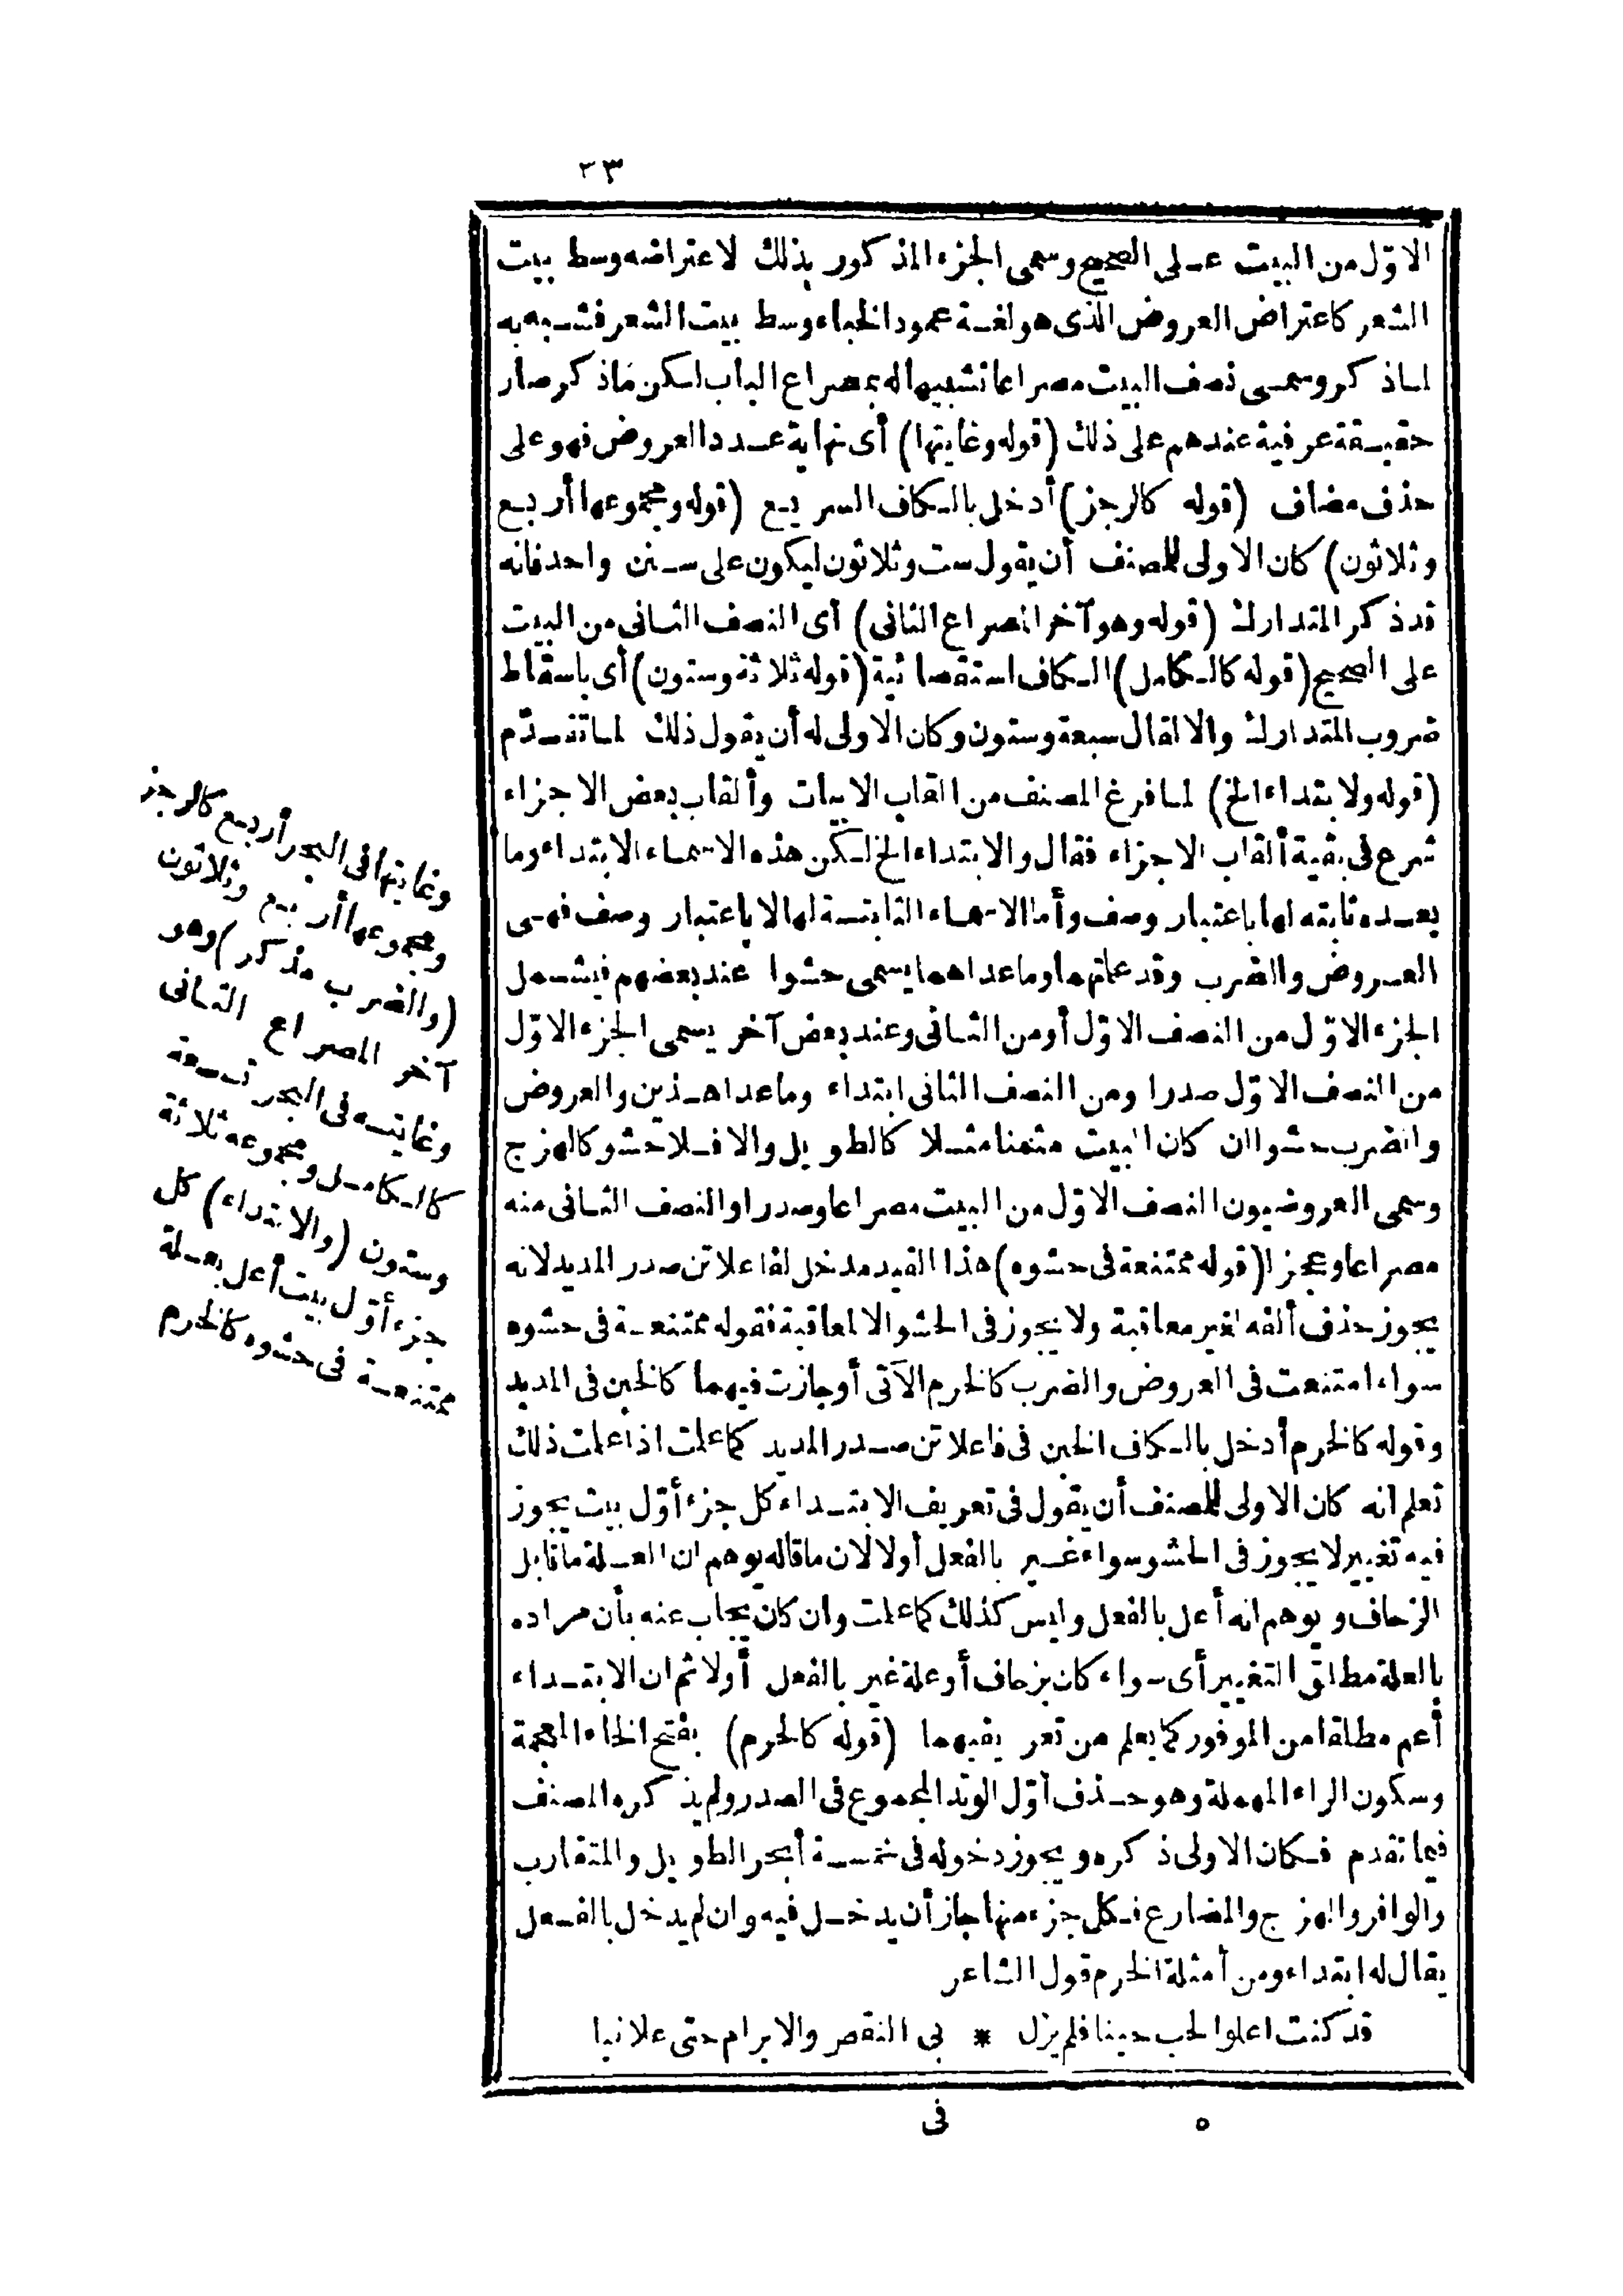 ٣٣
الاوّل من البيت على الصحيح وسمى الجزء المذكور بذلك لاعتراضه وسط بيت
الشعر كاعتراض العروض الذى هو لغة عمود الخباء وسط بيت الشعر فشبه به
لما ذكر وسمى نصف البيت مصراعا تشبيها له بمصراع الباب لكن ماذكر صار
حقيقة عرفية عندهم على ذلك (قوله وغايتها) أى نهاية عدد العروض فهو على
حذف مضاف (قوله كالرجز) أدخل بالكاف السريع (قوله ومجموعها أربع
وثلاثون) كان الاولى للمصنف أن يقول ست وثلاثون ليكون على سنن واحد فانه
قد ذكر المتدارك (قوله وهو آخر المصراع الثانى) أى النصف الثانى من البيت
على الصحيح (قوله كالكامل) الكاف استقصائية (قوله ثلاثة وستون) أى باسقاط
ضروب المتدارك والا لقال سبعة وستون وكان الاولى له أن يقول ذلك لما تقدّم
(قوله ولابتداء الخ) لما فرغ المصنف من القاب الابيات وألقاب بعض الاجزاء
شرع فى بقية ألقاب الاجزاء فقال والابتداء الخ لكن هذه الاسماء الابتداء وما
بعده ثابته لها باعتبار وصف وأما الاسماء الثابتة لها لا باعتبار وصف فهى
العروض والضرب وقد علمتهما وما عداهما يسمى حشوا عند بعضهم فيشمل
الجزء الاوّل من النصف الاوّل أو من الثانى وعند بعض آخر يسمى الجزء الاوّل
من النصف الاوّل صدرا ومن النصف الثانى ابتداء وما عدا هذين والعروض
والضرب حشوا ان كان البيت مثمنا مثلا كالطويل والا فلا حشو كالهزج
وسمى العروضيون النصف الاوّل من البيت مصراعا وصدرا والنصف الثانى منه
مصراعا وعجزا (قوله ممتنعة فى حشوه) هذا القيد مدخل لفاعلاتن صدر المديد لانه
يجوز حذف ألفه لغير معاقبة ولا يجوز فى الحشو الا لمعاقبة فقوله ممتنعة فى حشوه
سواء امتنعت فى العروض والضرب كالخرم الآتى أو جازت فيهما كالخبن فى المديد
وقوله كالخرم أدخل بالكاف الخبن فى فاعلاتن صدر المديد كما علمت اذا علمت ذلك
تعلم انه كان الاولى للمصنف أن يقول فى تعريف الابتداء كل جزء أوّل بيت يجوز
فيه تغيير لا يجوز فى الحشو سواء غير بالفعل أولا لان ما قاله يوهم ان العلة ما قابل
الزحاف ويوهم انه أعل بالفعل وليس كذلك كما علمت وان كان يجاب عنه بأن مراده
بالعلة مطلق التغيير أى سواء كان بزحاف أو علة غير بالفعل أولا ثم ان الابتداء
أعم مطلقا من الموفور كما يعلم من تعريفيهما (قوله كالخرم) بفتح الخاء المعجمة
وسكون الراء المهملة وهو حذف أوّل الوتد المجموع فى الصدر ولم يذكره المصنف
فيما تقدم فكان الاولى ذكره ويجوز دخوله فى خمسة أبحر الطويل والمتقارب
والوافر والهزج والمضارع فكل جزء منها جاز أن يدخل فيه وان لم يدخل بالفعل
يقال له ابتداء ومن أمثلة الخرم قول الشاعر
قد كنت اعلو الحب حينا فلم يزل * بى النقض والابرام حتى علانيا
٥ فى
وغايتها فى البحر أربع كالرجز
ومجموعها أربع وثلاثون
(والضرب مذكر) وهو
آخر المصراع الثانى
وغايته فى البحر تسعة
كالكامل ومجموعه ثلاثة
وستون (والابتداء) كل
جزء أوّل بيت أعل بعلة
ممتنعة فى حشوه كالخرم